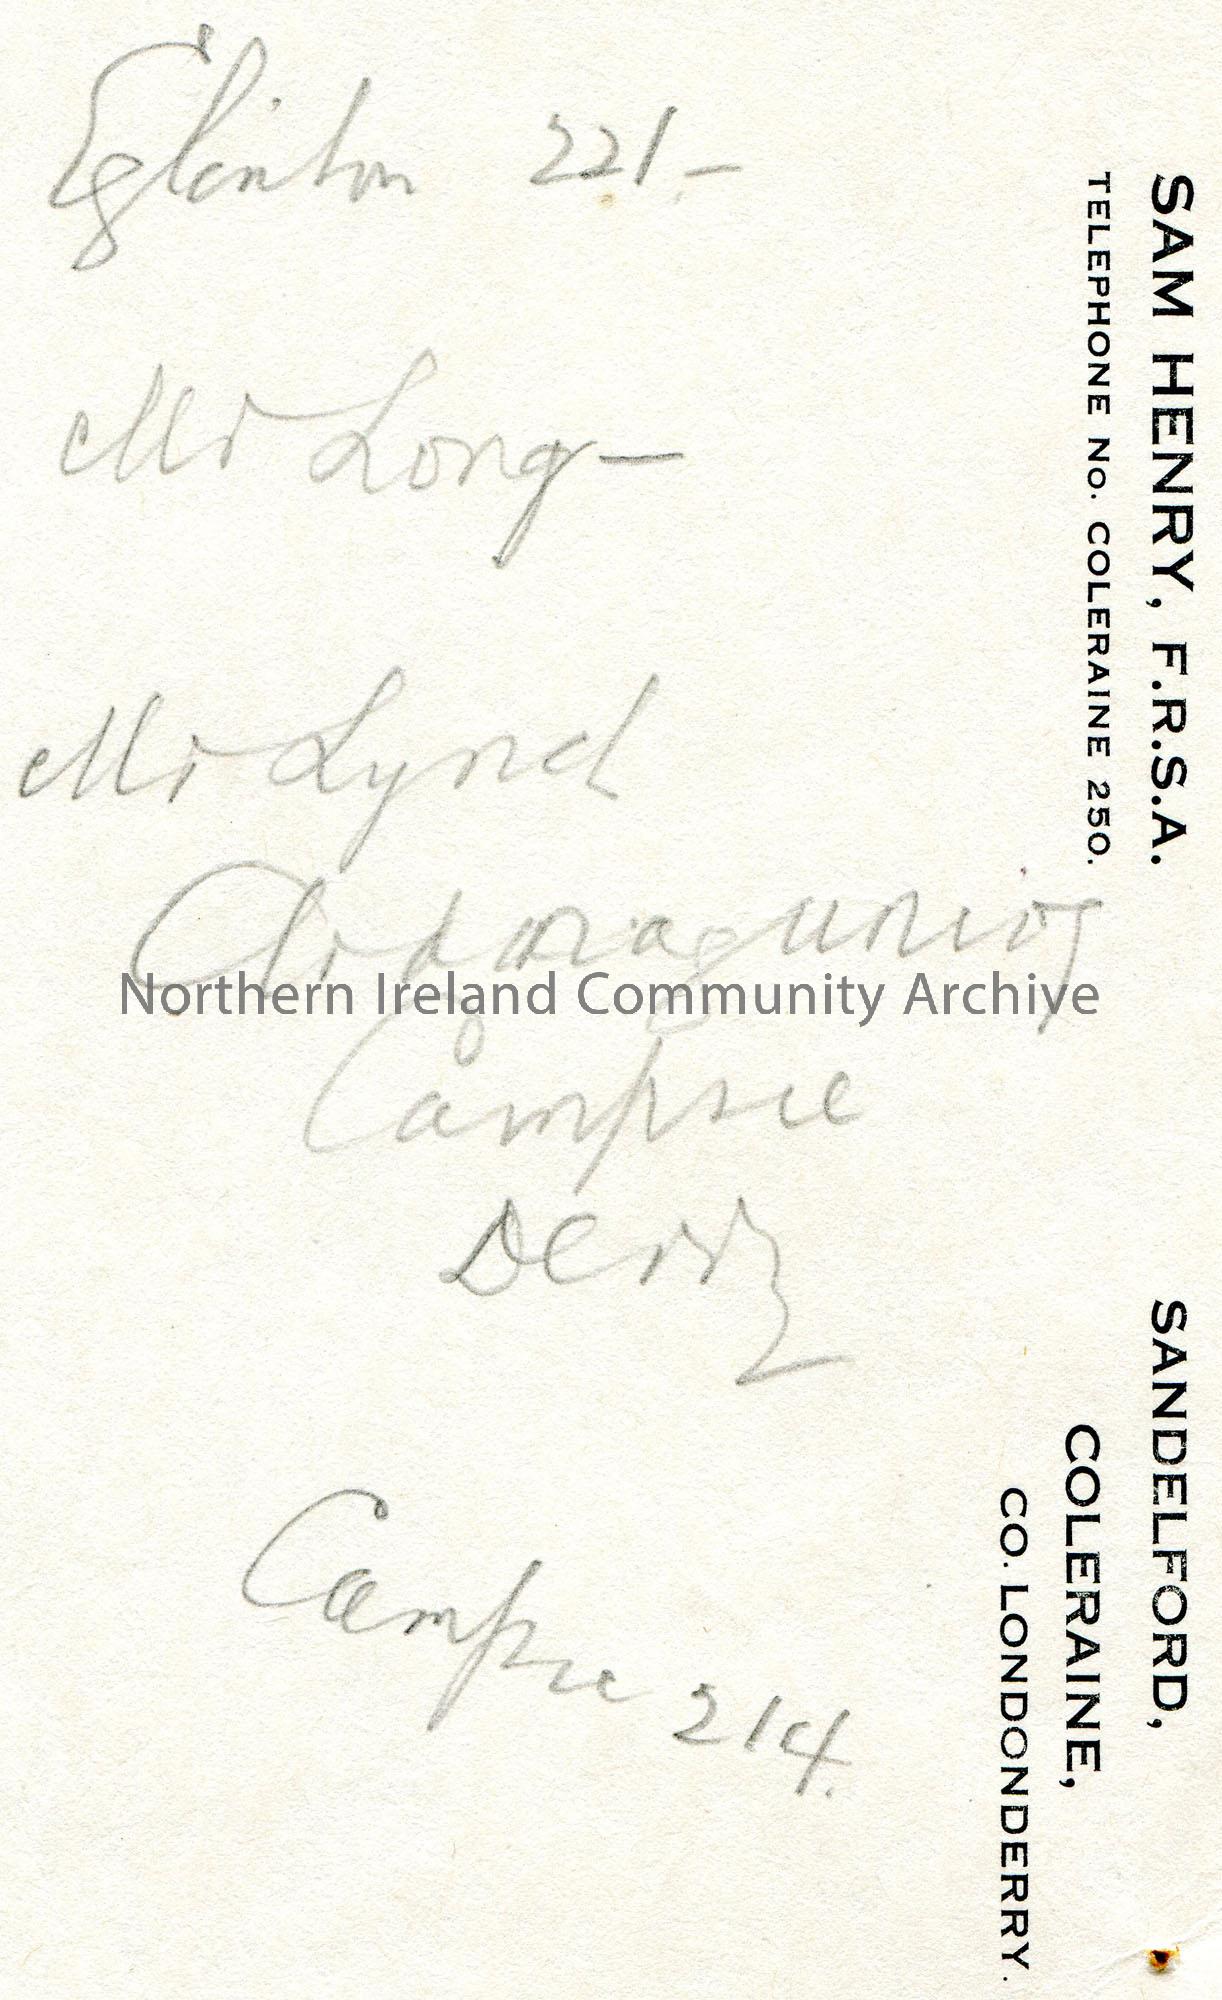 Eglinton 221.—
Mr Long —
Mr Lynch
Campsie
Derry
Campsie 214.
SAM HENRY, F.R.S.A.
TELEPHONE No. COLERAINE 250.
SANDELFORD,
COLERAINE,
CO. LONDONDERRY.
Northern Ireland Community Archive